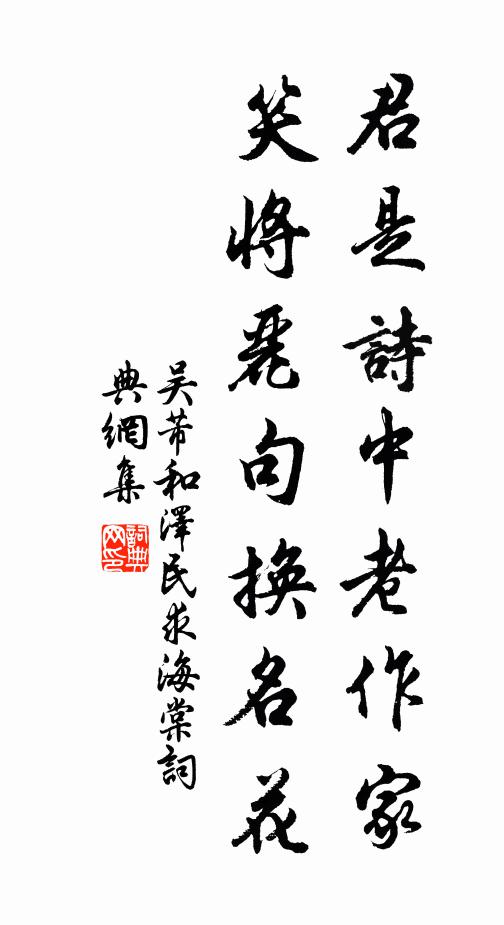 君是詩中老作家
笑將麗句換名花
吳芾和澤民求海棠詞
典網集
詞典網印